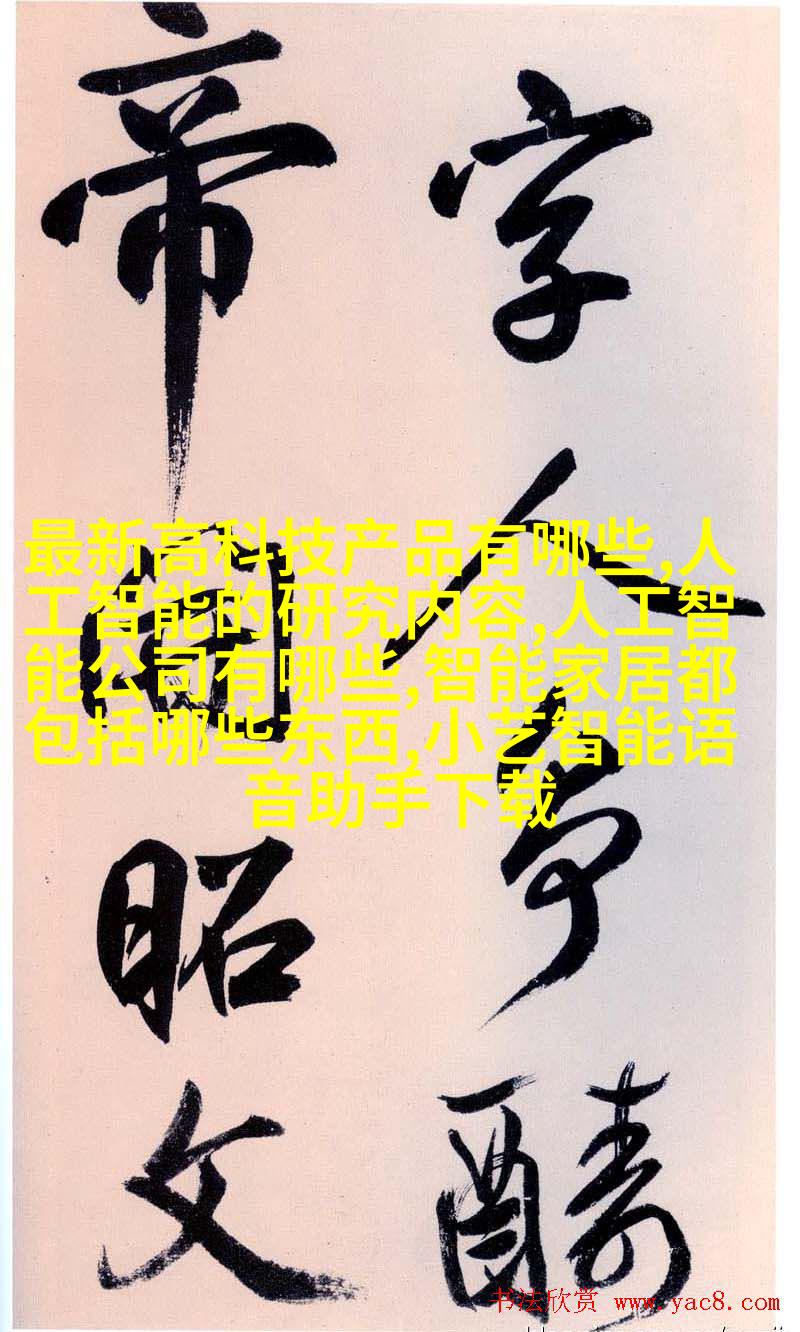 字人争醻
帝昭文
最新高科技产品有哪些,人
工智能的研究内容,人工智
能公司有哪些,智能家居都
包括哪些东西,小艺智能语
音助手下载
书法欣赏 www.yac8.com